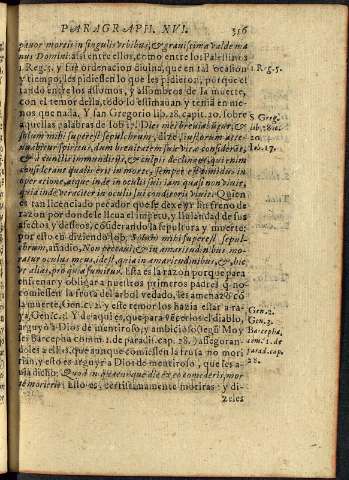 PARAGRAPH. XVI. 316
pauor mortis in singulis vrbibus, & grauissima valde ma
nus Domini: assi entre ellos, como entre los Palestinos
1. Reg. 5. y fue ordenacion diuina, que en tal ocasion 1. Reg. 5.
y tiempo, les pidiessen lo que les pidieron, porque el
tando entre los assumos, y assombros de la muerte,
con el temor della, todo lo estimauan y tenia en me-
nos que nada. Y san Gregorio lib. 28. capit. 20. sobre S. Greg.
aquellas palabras de Iob 17. Dies mei breuiabuntur, & lib. 28. c.
solum mihi superest sepulchrum, dize, 20.
nuabitur spiritus, dum breuitatem suæ vitæ considerat, Iob. 17.
& à cunctis immunditijs, & culpis declinat, qui enim
considerat qualis erit in morte, semper est timidus in
operatione, atque inde in oculis suis iam quasi non viuit,
quia inde veraciter in oculis sui conditoris viuit. Quien
es tan licenciado pecador que se dexe yr sin freno de
razon por donde le lleua el impetu, y liuiandad de sus
afectos y desseos, cõsiderando la sepultura y muerte:
por esto en diziendo Iob, Solum mihi superest sepul-
chrum, añadio, Non peccaui, & in amaritudinibus mo-
ratur oculus meus, idest, quia in amaritudinibus, &
Esta es la razon porque para
enfrenar y obligar a nuestros primeros padres q̃ no
comiessen la fruta del arbol vedado, les amenazó cõ
la muerte, Gen. c. 2. y este temor los hazia estar a ra- Gen. 2.
ya, Gen. c. 3. Y de aqui es, que para vẽcerlos el diablo, Gen. 3.
arguyò à Dios de mentiroso, y ambicioso (segũ Moy Barcepha,
ses Barcepha comm. 1. de paradi. cap. 28.) assegoran- com. 1. de
doles a ellos, que aunque comiessen la fruta no mori parad. cap.
rian, y esto es arguyr a Dios de mentiroso, que les a- 28.
uia dicho: Quod in quacunque die ex eo comederis, mor
te morieris: Esso es, certissimamente moriras: y di-
zeles